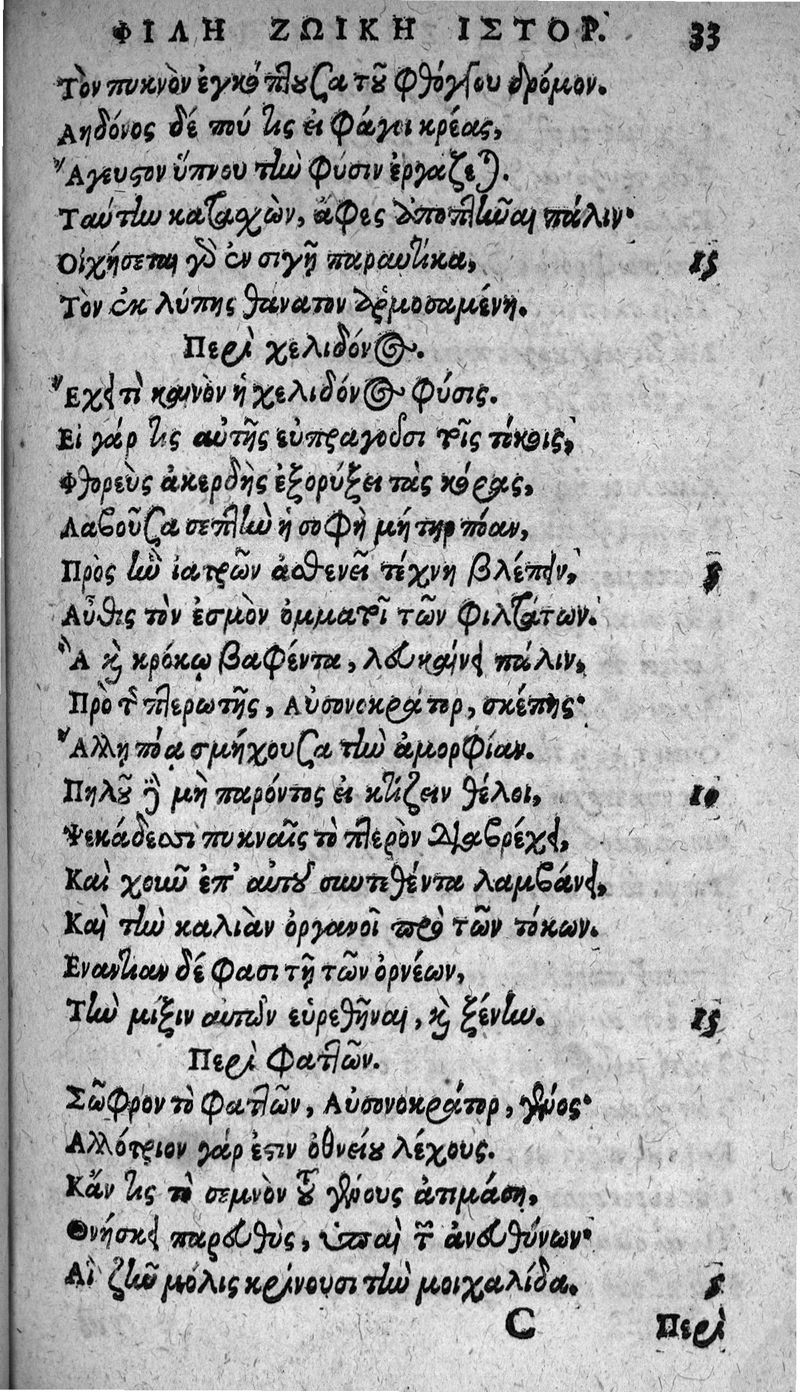 ΦΙΛΗ ΖΩΙΚΗ ΙΣΤΟΡ. 33
Τὸν πυκνὸν ἐγκόπτουσα τοῦ φθόγγου δρόμον.
Αηδόνος δέ πού τις εἰ φάγοι κρέας,
Ἄγευστον ὕπνου τὴν φύσιν ἐργάζεται.
Ταύτην κατασχὼν, ἄφες ἀποπτῆναι πάλιν·
Οἰχήσεται γὰρ ἐν σιγῇ παραυτίκα, 15
Τὸν ἐκ λύπης θάνατον ἁρμοσαμένη.
Περὶ χελιδόνος.
Ἔχει τὶ καινὸν ἡ χελιδόνος φύσις.
Εἰ γάρ τις αὐτῆς εὐπραγοῦσι τοῖς τόκοις,
Φθορεὺς ἀκερδὴς ἐξορύξει τὰς κόρας,
Λαβοῦσα σεπτὴν ἡ σοφὴ μήτηρ πόαν,
Πρὸς ἣν ἰατρῶν ἀσθενεῖ τέχνη βλέπειν, 5
Αὖθις τὸν ἑσμὸν ὀμματοῖ τῶν φιλτάτων.
Ἃ καὶ κρόκῳ βαφέντα, λευκαίνει πάλιν,
Πρὸ τῆς πτερωτῆς, Αὐσονοκράτορ, σκέπης·
Ἄλλῃ πόα σμήχουσα τὴν ἀμορφίαν.
Πηλοῦ δὲ μὴ παρόντος εἰ κτίζειν θέλοι, 10
Ψεκάδεσσι πυκναῖς τὸ πτερὸν διαβρέχει,
Καὶ χοῦν ἐπ' αὐτοῦ συντιθέντα λαμβάνει,
Καὶ τὴν καλιὰν ὀργανοῖ πρὸ τῶν τόκων.
Εναντίαν δέ φασι τῇ τῶν ὀρνέων,
Τὴν μίξιν αὐτῶν εὑρεθῆναι, καὶ ξένην. 15
Περὶ φαττῶν.
Σῶφρον τὸ φαττῶν, Αὐσονοκράτορ, γένος·
Αλλότριον γάρ ἐστιν ὀθνείου λέχους.
Κἄν τις τὸ σεμνὸν τοῦ γένους ἀτιμάσῃ,
Θνήσκει παρευθὺς, ὑπαὶ τῶν ἀνευθύνων·
Αἳ ζῆν μόλις κρίνουσι τὴν μοιχαλίδα. 5
C Περὶ